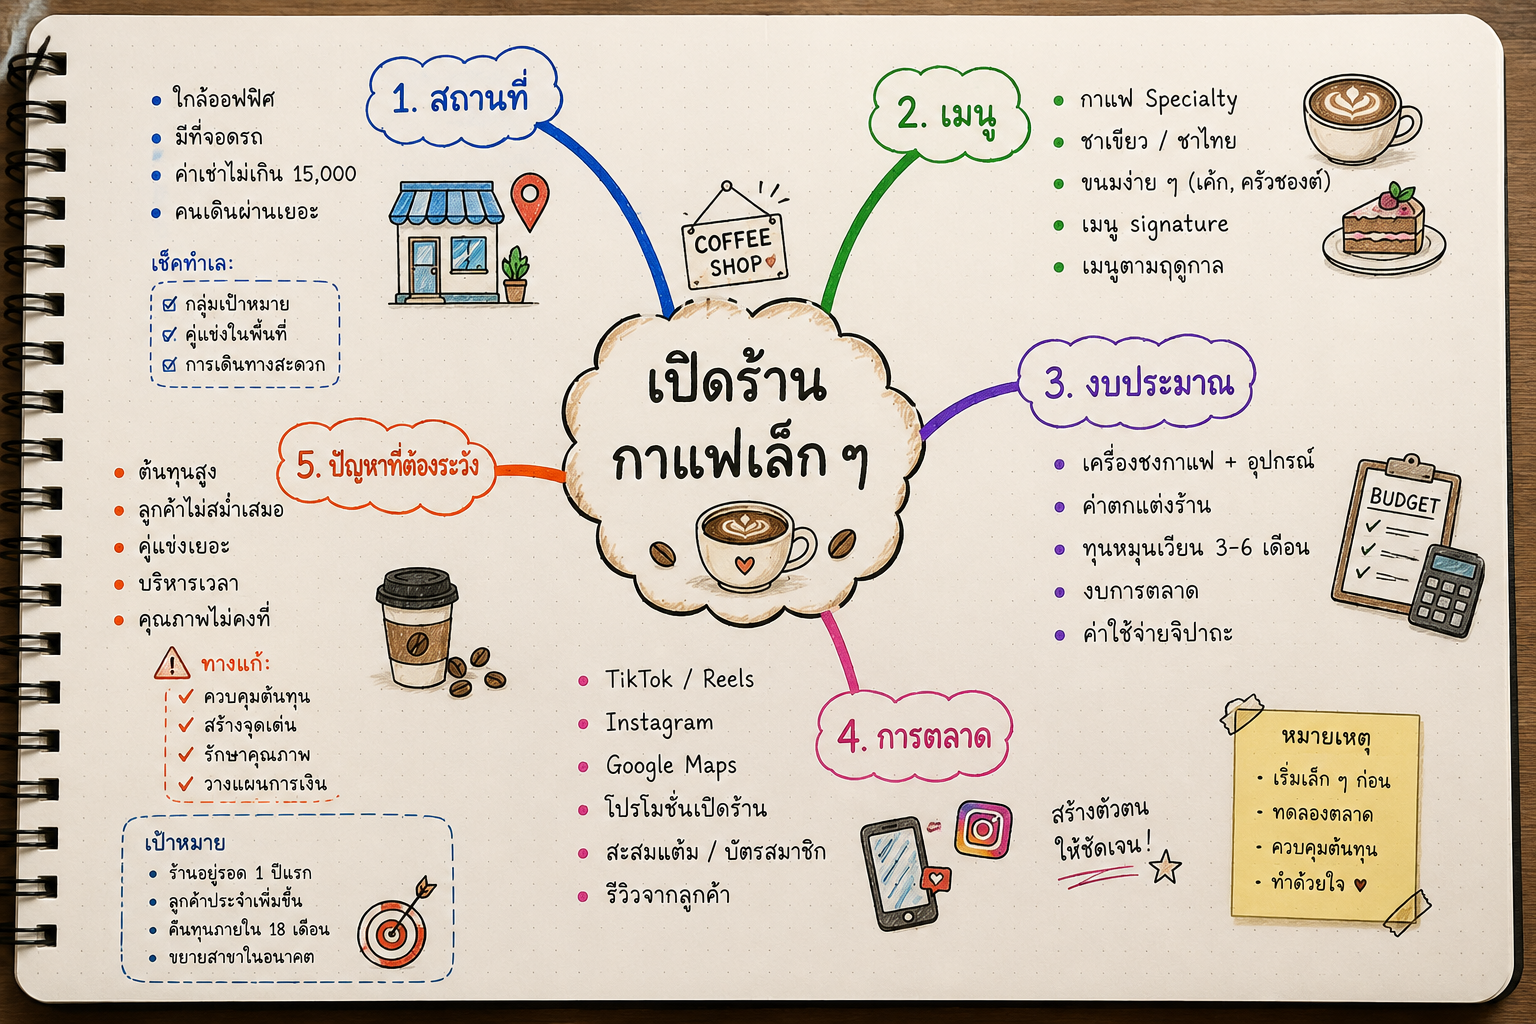 1. สถานที่
ใกล้ออฟฟิศ
มีที่จอดรถ
ค่าเช่าไม่เกิน 15,000
คนเดินผ่านเยอะ
เช็คทำเล:
กลุ่มเป้าหมาย
คู่แข่งในพื้นที่
การเดินทางสะดวก
COFFEE
SHOP
เปิดร้าน
กาแฟเล็ก ๆ
2. เมนู
กาแฟ Specialty
ชาเขียว / ชาไทย
ขนมง่าย ๆ (เค้ก, ครัวซองต์)
เมนู signature
เมนูตามฤดูกาล
3. งบประมาณ
เครื่องชงกาแฟ + อุปกรณ์
ค่าตกแต่งร้าน
ทุนหมุนเวียน 3-6 เดือน
งบการตลาด
ค่าใช้จ่ายจิปาถะ
BUDGET
4. การตลาด
TikTok / Reels
Instagram
Google Maps
โปรโมชั่นเปิดร้าน
สะสมแต้ม / บัตรสมาชิก
รีวิวจากลูกค้า
สร้างตัวตน
ให้ชัดเจน!
5. ปัญหาที่ต้องระวัง
ต้นทุนสูง
ลูกค้าไม่สม่ำเสมอ
คู่แข่งเยอะ
บริหารเวลา
คุณภาพไม่คงที่
ทางแก้:
ควบคุมต้นทุน
สร้างจุดเด่น
รักษาคุณภาพ
วางแผนการเงิน
เป้าหมาย
ร้านอยู่รอด 1 ปีแรก
ลูกค้าประจำเพิ่มขึ้น
คืนทุนภายใน 18 เดือน
ขยายสาขาในอนาคต
หมายเหตุ
เริ่มเล็ก ๆ ก่อน
ทดลองตลาด
ควบคุมต้นทุน
ทำด้วยใจ